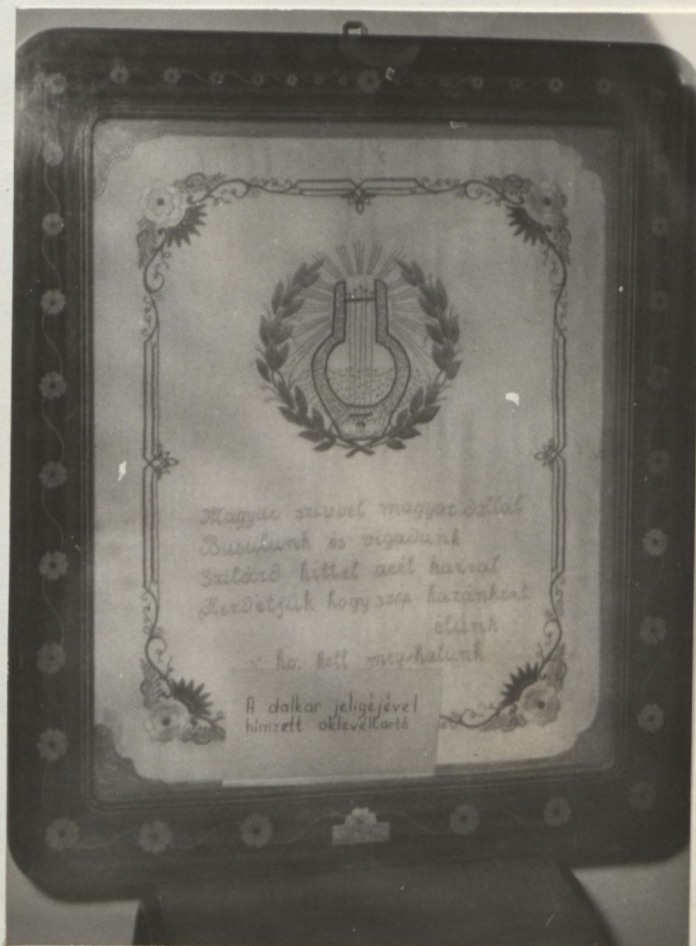 Magyar szívvel magyar dallal
Busulunk és vigadunk
Szilárd hittel acél karral
Hirdetjük hogy szép hazánkért
élünk
s' ha kell meghalunk
A dalkar jeligéjével
himzett oklevéltartó